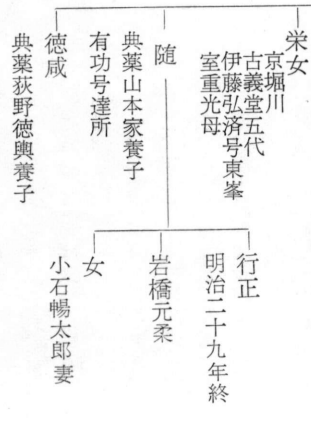 栄女
京堀川
古義堂五代
伊藤弘済号東峯
室重光母
随
典薬山本家養子
有功号達所
徳咸
典薬荻野徳輿養子
行正
明治二十九年終
岩橋元柔
女
小石暢太郎妻